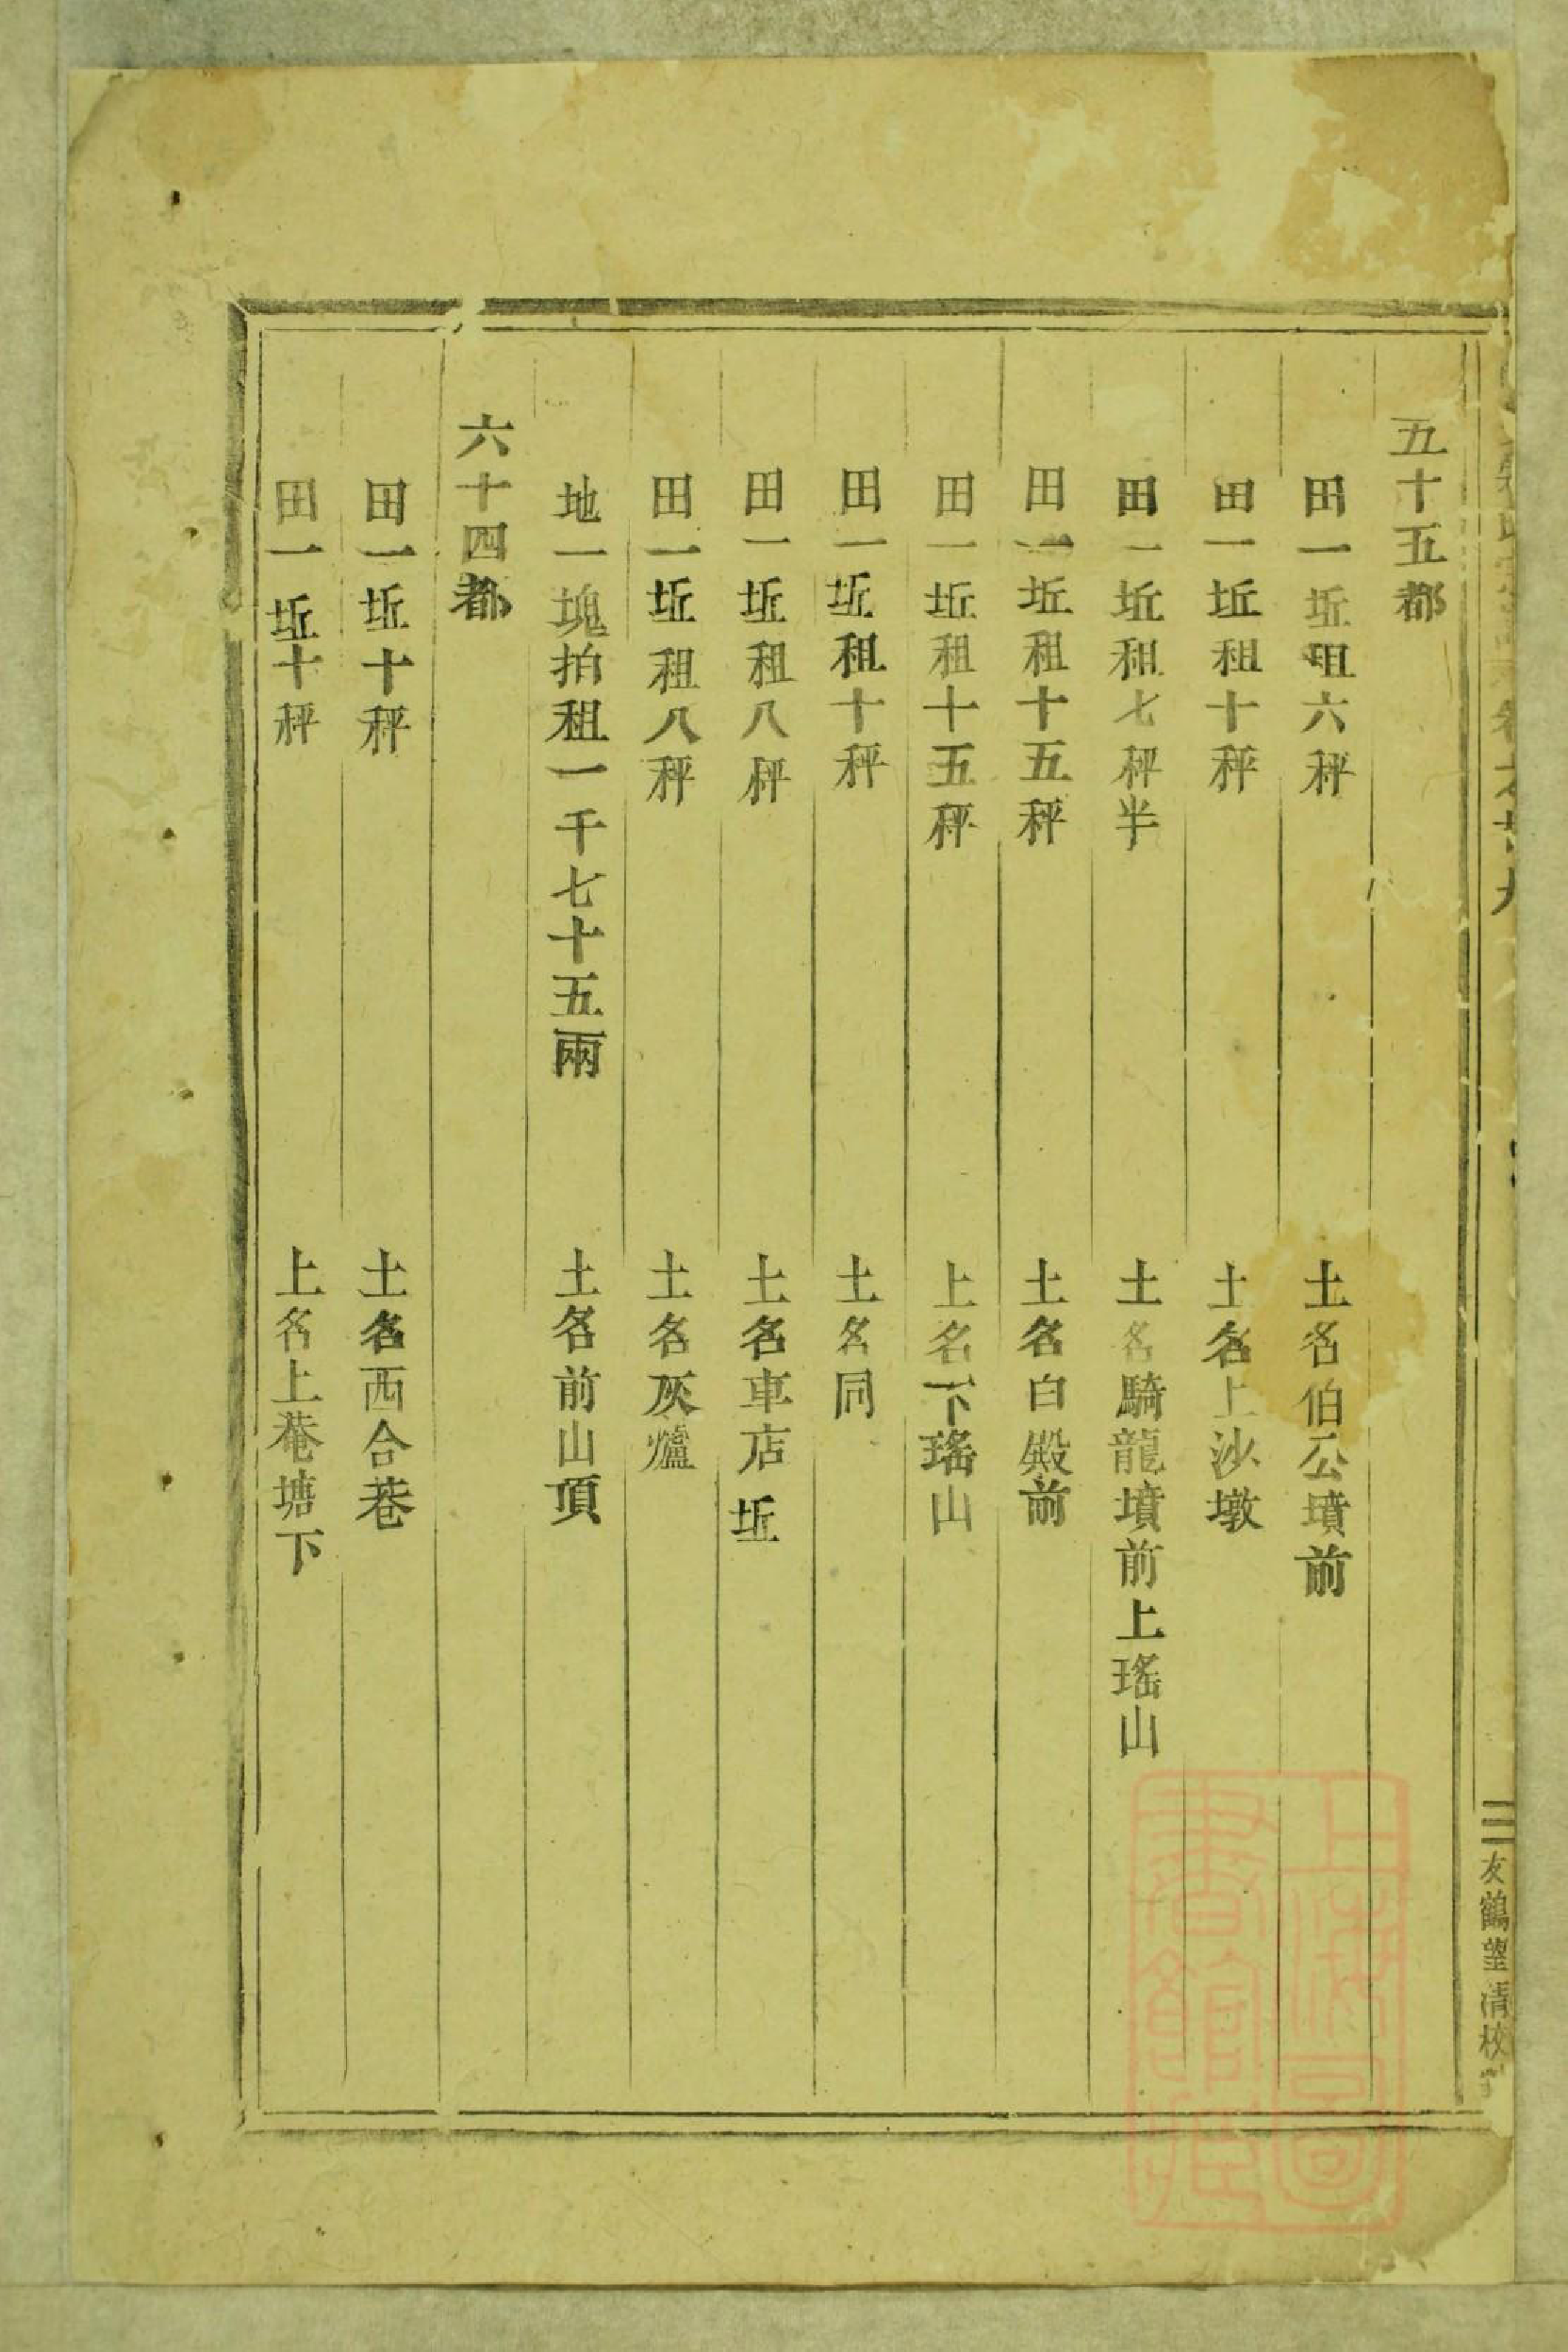 五十五都
田一坵租六秤 土名伯公墳前
田一坵租十秤 土名上沙墩
田一坵租七秤半 土名騎龍墳前上瑤山
田一坵租十五秤 土名白殿前
田一坵租十五秤 土名下瑤山
田一坵租十秤 土名同
田一坵租八秤 土名車店坵
田一坵租八秤 土名灰爐
地一塊拍租一千七十五兩 土名前山頂
六十四都
田一坵十秤 土名西合巷
田一坵十秤 上名上菴塘下
三 友鶴堂清校
上海圖書館藏